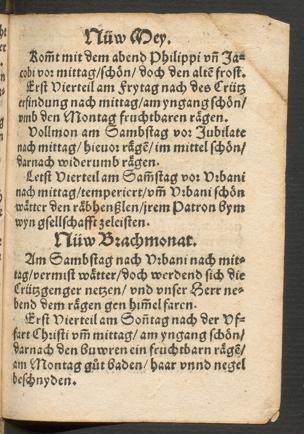 Nüw Mey.
Kom̃t mit dem abend Philippi vñ Ja-
cobi vor mittag/schön/ doch den altẽ frost.
Erst Vierteil am Frytag nach des Crütz
erfindung nach mittag/am yngang schön/
vmb den Montag fruchtbaren rägen.
Vollmon am Sambstag vor Jubilate
nach mittag/hieuor rägẽ/im mittel schön/
darnach widerumb rägen.
Letst Vierteil am Sam̃stag vor Vrbani
nach mittag/temperiert/vm̃ Vrbani schön
wätter den räbhenßlen/jrem Patron bym
wyn gsellschafft zeleisten.
Nüw Brachmonat.
Am Sambstag nach Vrbani nach mit-
tag/vermist wätter/doch werdend sich die
Crützgenger netzen/ vnd vnser Herr ne-
bend dem rägen gen him̃el faren.
Erst Vierteil am Son̄tag nach der Vf-
fart Christi vm̃ mittag/ am yngang schön/
darnach den buwren ein fruchtbarn rägẽ/
am Montag gůt baden/ haar vnnd negel
beschnyden.